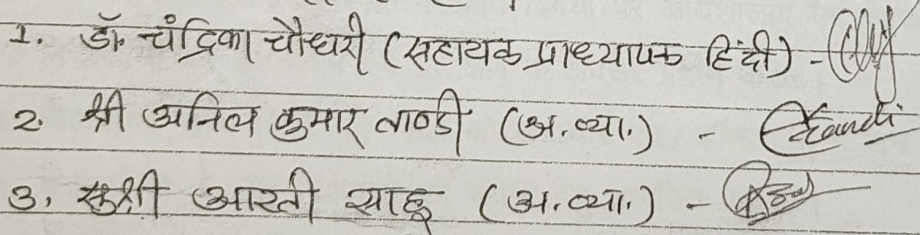 1. डॉ. चंद्रिका चौधरी (सहायक प्राध्यापक हिंदी) -
2. श्री अनिल कुमार लाण्डी (अ. व्या.) -
3. सुश्री आरती साहू (अ. व्या.) -